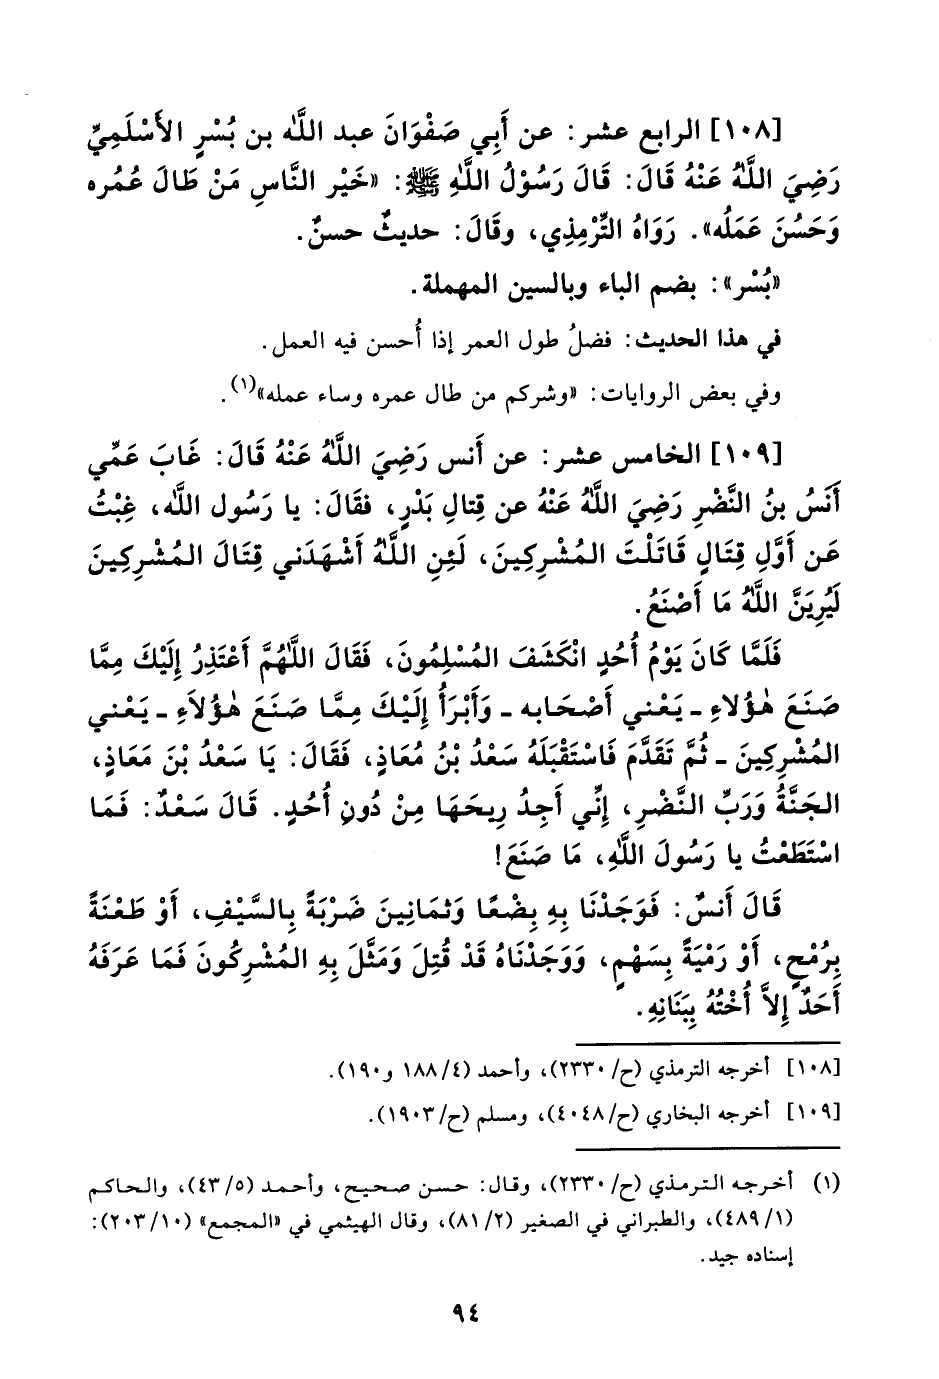 [١٠٨] الرابع عشر: عن أَبِي صَفْوَانَ عبد اللَّه بن بُسْرٍ الأَسْلَمِيِّ
رَضِيَ اللَّهُ عَنْهُ قَالَ: قَالَ رَسُوْلُ اللَّهِ ﷺ: «خَيْر النَّاسِ مَنْ طَالَ عُمُره
وَحَسُنَ عَمَلُه». رَوَاهُ التِّرْمِذِي، وقَالَ: حديثٌ حسنٌ.
«بُسْر»: بضم الباء وبالسين المهملة.
في هذا الحديث: فضلُ طول العمر إذا أُحسن فيه العمل.
وفي بعض الروايات: «وشركم من طال عمره وساء عمله»(١).
[١٠٩] الخامس عشر: عن أَنس رَضِيَ اللَّهُ عَنْهُ قَالَ: غَابَ عَمِّي
أَنَسُ بنُ النَّضْرِ رَضِيَ اللَّهُ عَنْهُ عن قِتالِ بَدْرٍ، فقَالَ: يا رَسُول اللَّه، غِبْتُ
عَن أَوَّلِ قِتَالٍ قَاتَلْتَ المُشْرِكِينَ، لَئِنِ اللَّهُ أَشْهَدَني قِتَالَ المُشْرِكِينَ
لَيُرِيَنَّ اللَّهُ مَا أَصْنَعُ.
فَلَمَّا كَانَ يَوْمُ أُحُدٍ انْكَشَفَ المُسْلِمُونَ، فَقَالَ اللَّهُمَّ أَعْتَذِرُ إِلَيْكَ مِمَّا
صَنَعَ هٰؤُلاءِ ـ يَعْني أَصْحَابه ـ وَأَبْرَأُ إِلَيْكَ مِمَّا صَنَعَ هٰؤُلاَءِ ـ يَعْني
المُشْرِكِينَ ـ ثُمَّ تَقَدَّمَ فَاسْتَقْبَلَهُ سَعْدُ بْنُ مُعَاذٍ، فَقَالَ: يَا سَعْدُ بْنَ مَعَاذٍ،
الجَنَّةُ وَرَبِّ النَّضْرِ، إِنِّي أَجِدُ رِيحَهَا مِنْ دُونِ أُحُدٍ. قَالَ سَعْدٌ: فَمَا
اسْتَطَعْتُ يا رَسُولَ اللَّهِ، مَا صَنَعَ!
قَالَ أَنسٌ: فَوَجَدْنَا بِهِ بِضْعًا وَثمَانِينَ ضَرْبَةً بِالسَّيْفِ، أَوْ طَعْنَةً
بِرُمْحٍ، أَوْ رَمْيَةً بِسَهْمٍ، وَوَجَدْنَاهُ قَدْ قُتِلَ وَمَثَّلَ بِهِ المُشْرِكُونَ فَمَا عَرَفَهُ
أَحَدٌ إِلاَّ أُخْتُهُ بِبَنَانِهِ.
[١٠٨] أخرجه الترمذي (ح/٢٣٣٠)، وأحمد (٤/١٨٨ و١٩٠).
[١٠٩] أخرجه البخاري (ح/٤٠٤٨)، ومسلم (ح/١٩٠٣).
(١) أخرجه الترمذي (ح/٢٣٣٠)، وقال: حسن صحيح، وأحمد (٤٣/٥)، والحاكم
(٤٨٩/١)، والطبراني في الصغير (٨١/٢)، وقال الهيثمي في «المجمع» (٢٠٣/١٠):
إسناده جيد.
٩٤